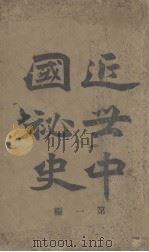 近世中
國祕史
第一編